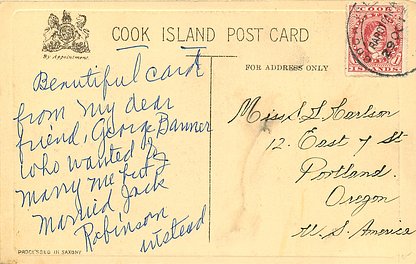 By Appointment.
COOK ISLAND POST CARD
FOR ADDRESS ONLY
COOK
ISLANDS
RARO
Beautiful card
from my dear
friend, George Banner
who wanted to
marry me but I
married Jack
Robinson
instead
Miss S. L. Harlson
12. East 7 St
Portland.
Oregon
U.S. America
PROCESSED IN SAXONY